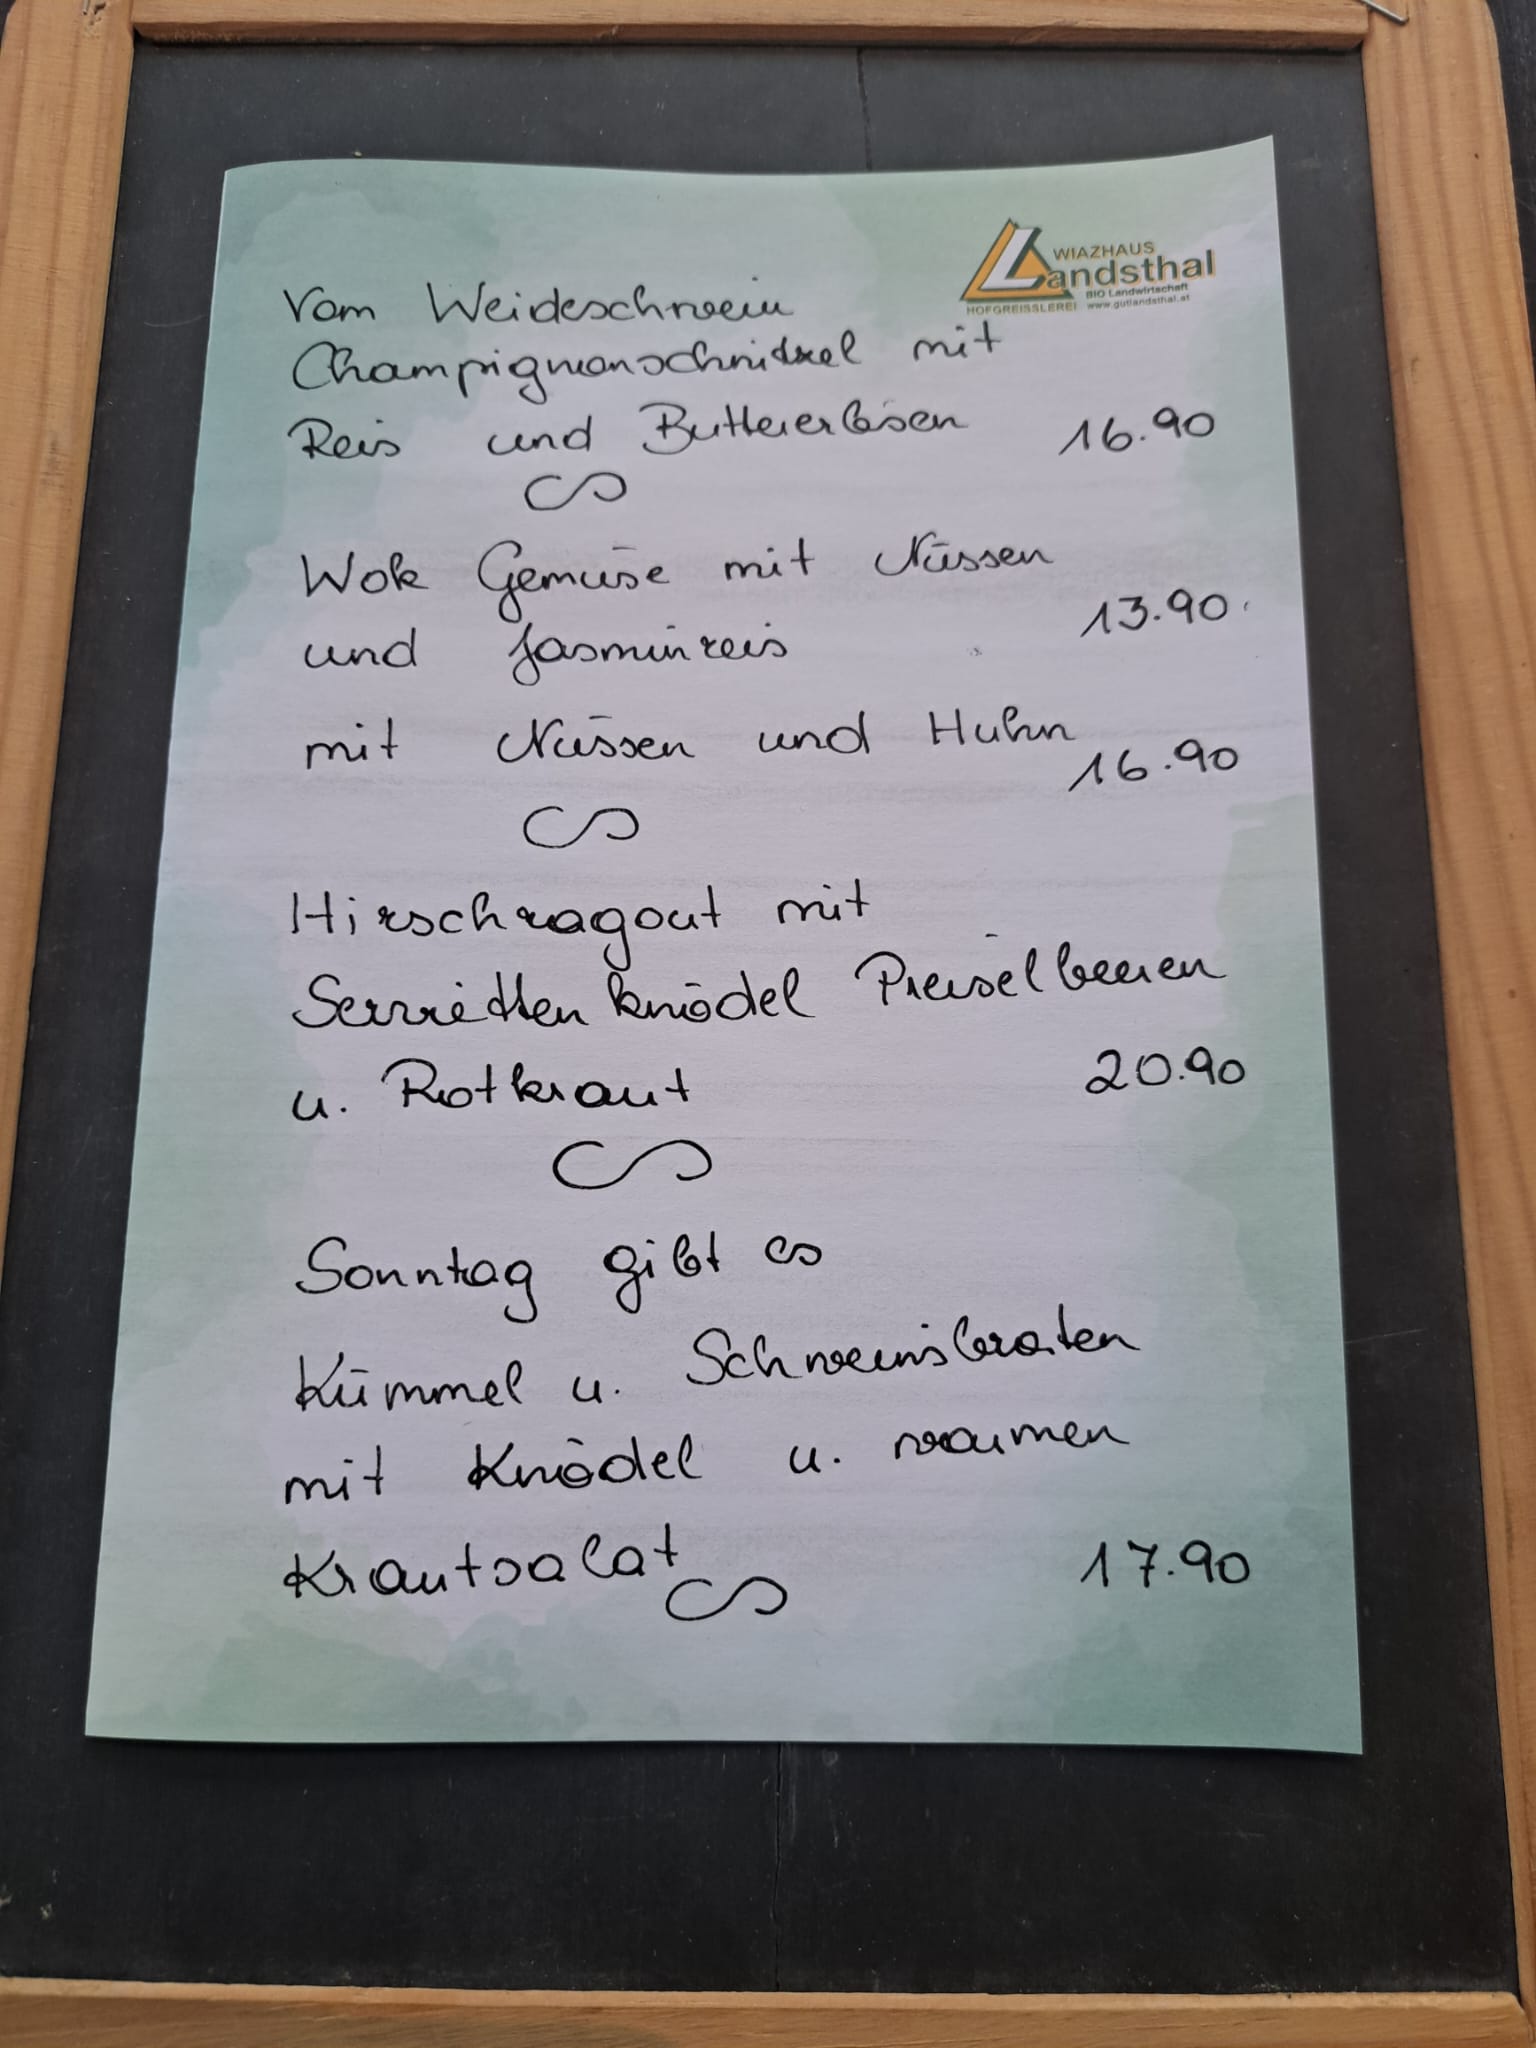 WIAZHAUS
Landsthal
BIO Landwirtschaft
HOFGREISSLEREI www.gutlandsthal.at
Vom Weideschwein
Champignonschnitzel mit
Reis und Buttererbsen 16.90
Wok Gemüse mit Nüssen
und Jasminreis 13.90
mit Nüssen und Huhn 16.90
Hirschragout mit
Serviettenknödel Preiselbeeren
u. Rotkraut 20.90
Sonntag gibt es
Kümmel u. Schweinsbraten
mit Knödel u. warmen
Krautsalat 17.90